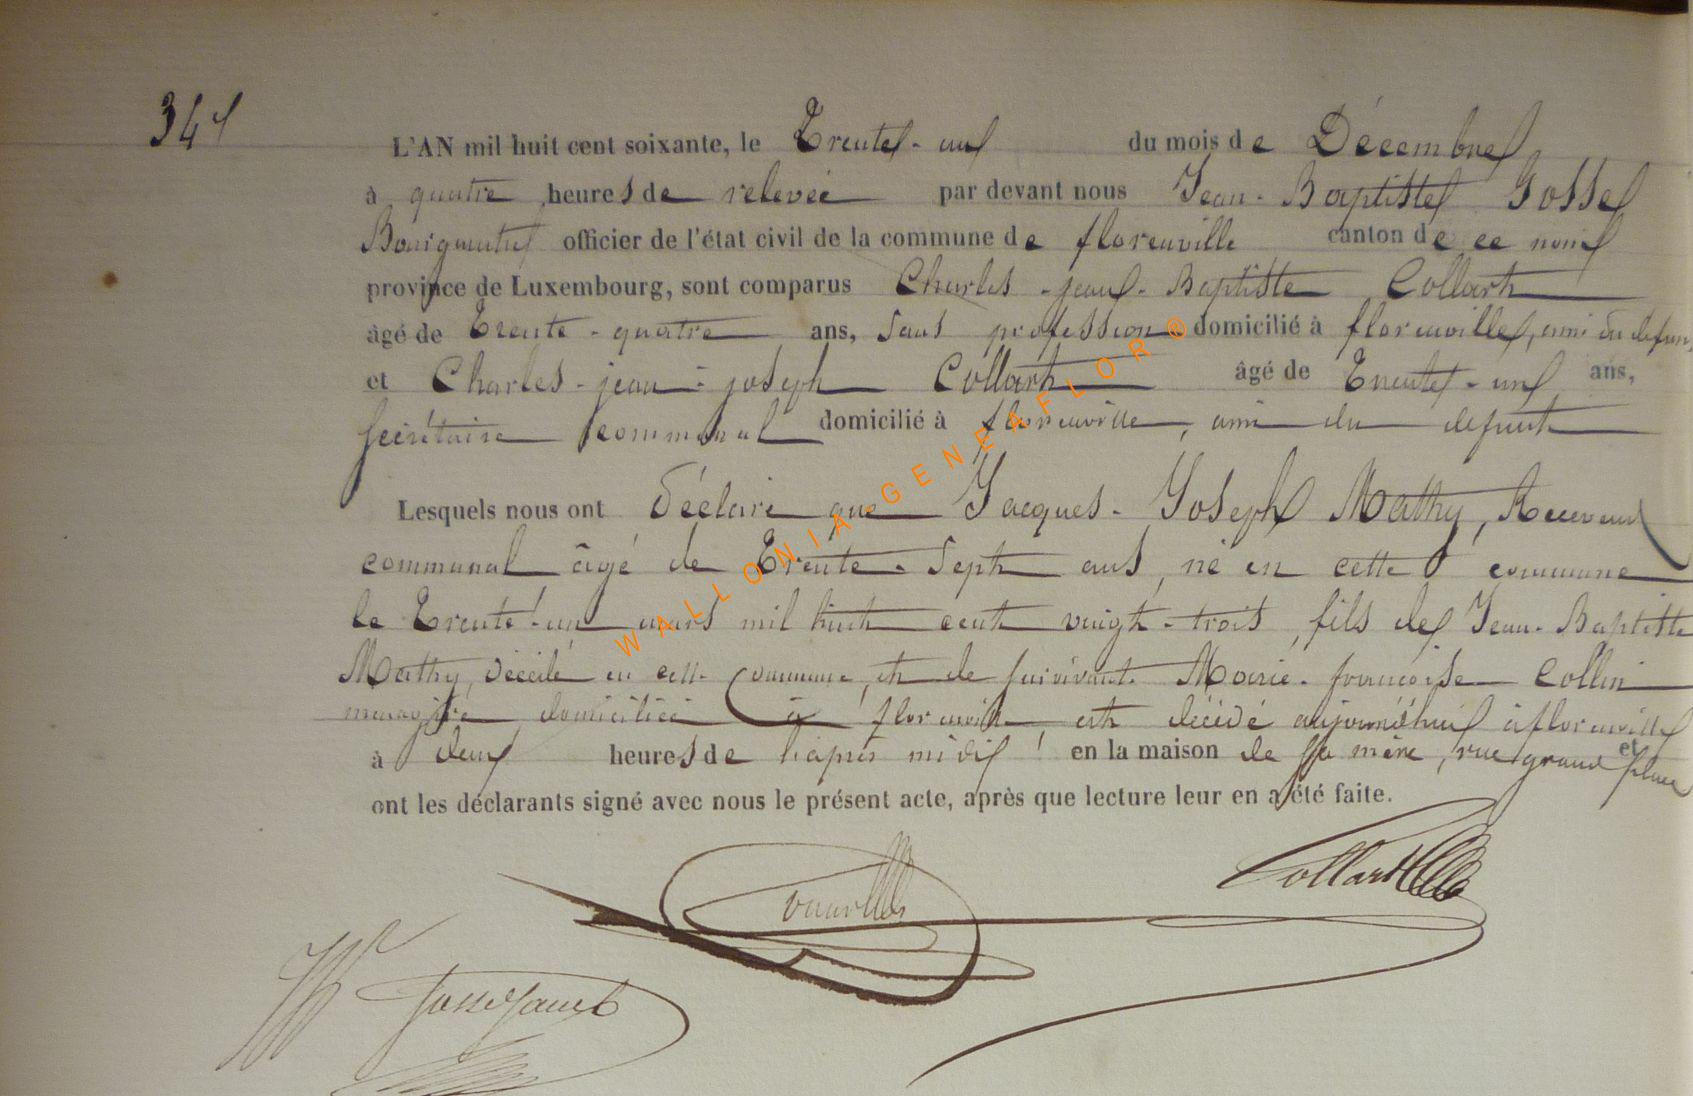 34
L'AN mil huit cent soixante, le Trente-un du mois de Décembre
à quatre heures de relevée par devant nous Jean-Baptiste Gosse
Bourgmestre officier de l'état civil de la commune de florenville canton de ce nom
province de Luxembourg, sont comparus Charles-jean-Baptiste Collart
âgé de Trente-quatre ans, sans profession domicilié à florenville, ami du defunt
et Charles-jean-joseph Collart âgé de Trente-un ans,
secrétaire communal domicilié à florenville, ami du defunt
Lesquels nous ont déclaré que Jacques-Joseph Mathy, Receveur
communal âgé de Trente-sept ans, né en cette commune
le Trente-un mars mil huit cent vingt-trois, fils de Jean-Baptiste
Mathy, décédé en cette commune, et de survivante Marie-françoise Collin
menagère domiciliée à florenville est décédé aujourd'hui à florenville
à deux heures de l'après midi en la maison de sa mère, rue grand place et
ont les déclarants signé avec nous le présent acte, après que lecture leur en a été faite.
Collart
WALLONIA GENEAFLOR®